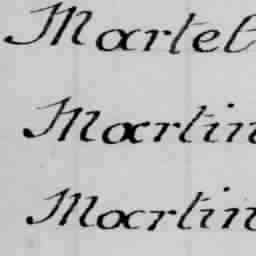 Martel
Martin
Martin